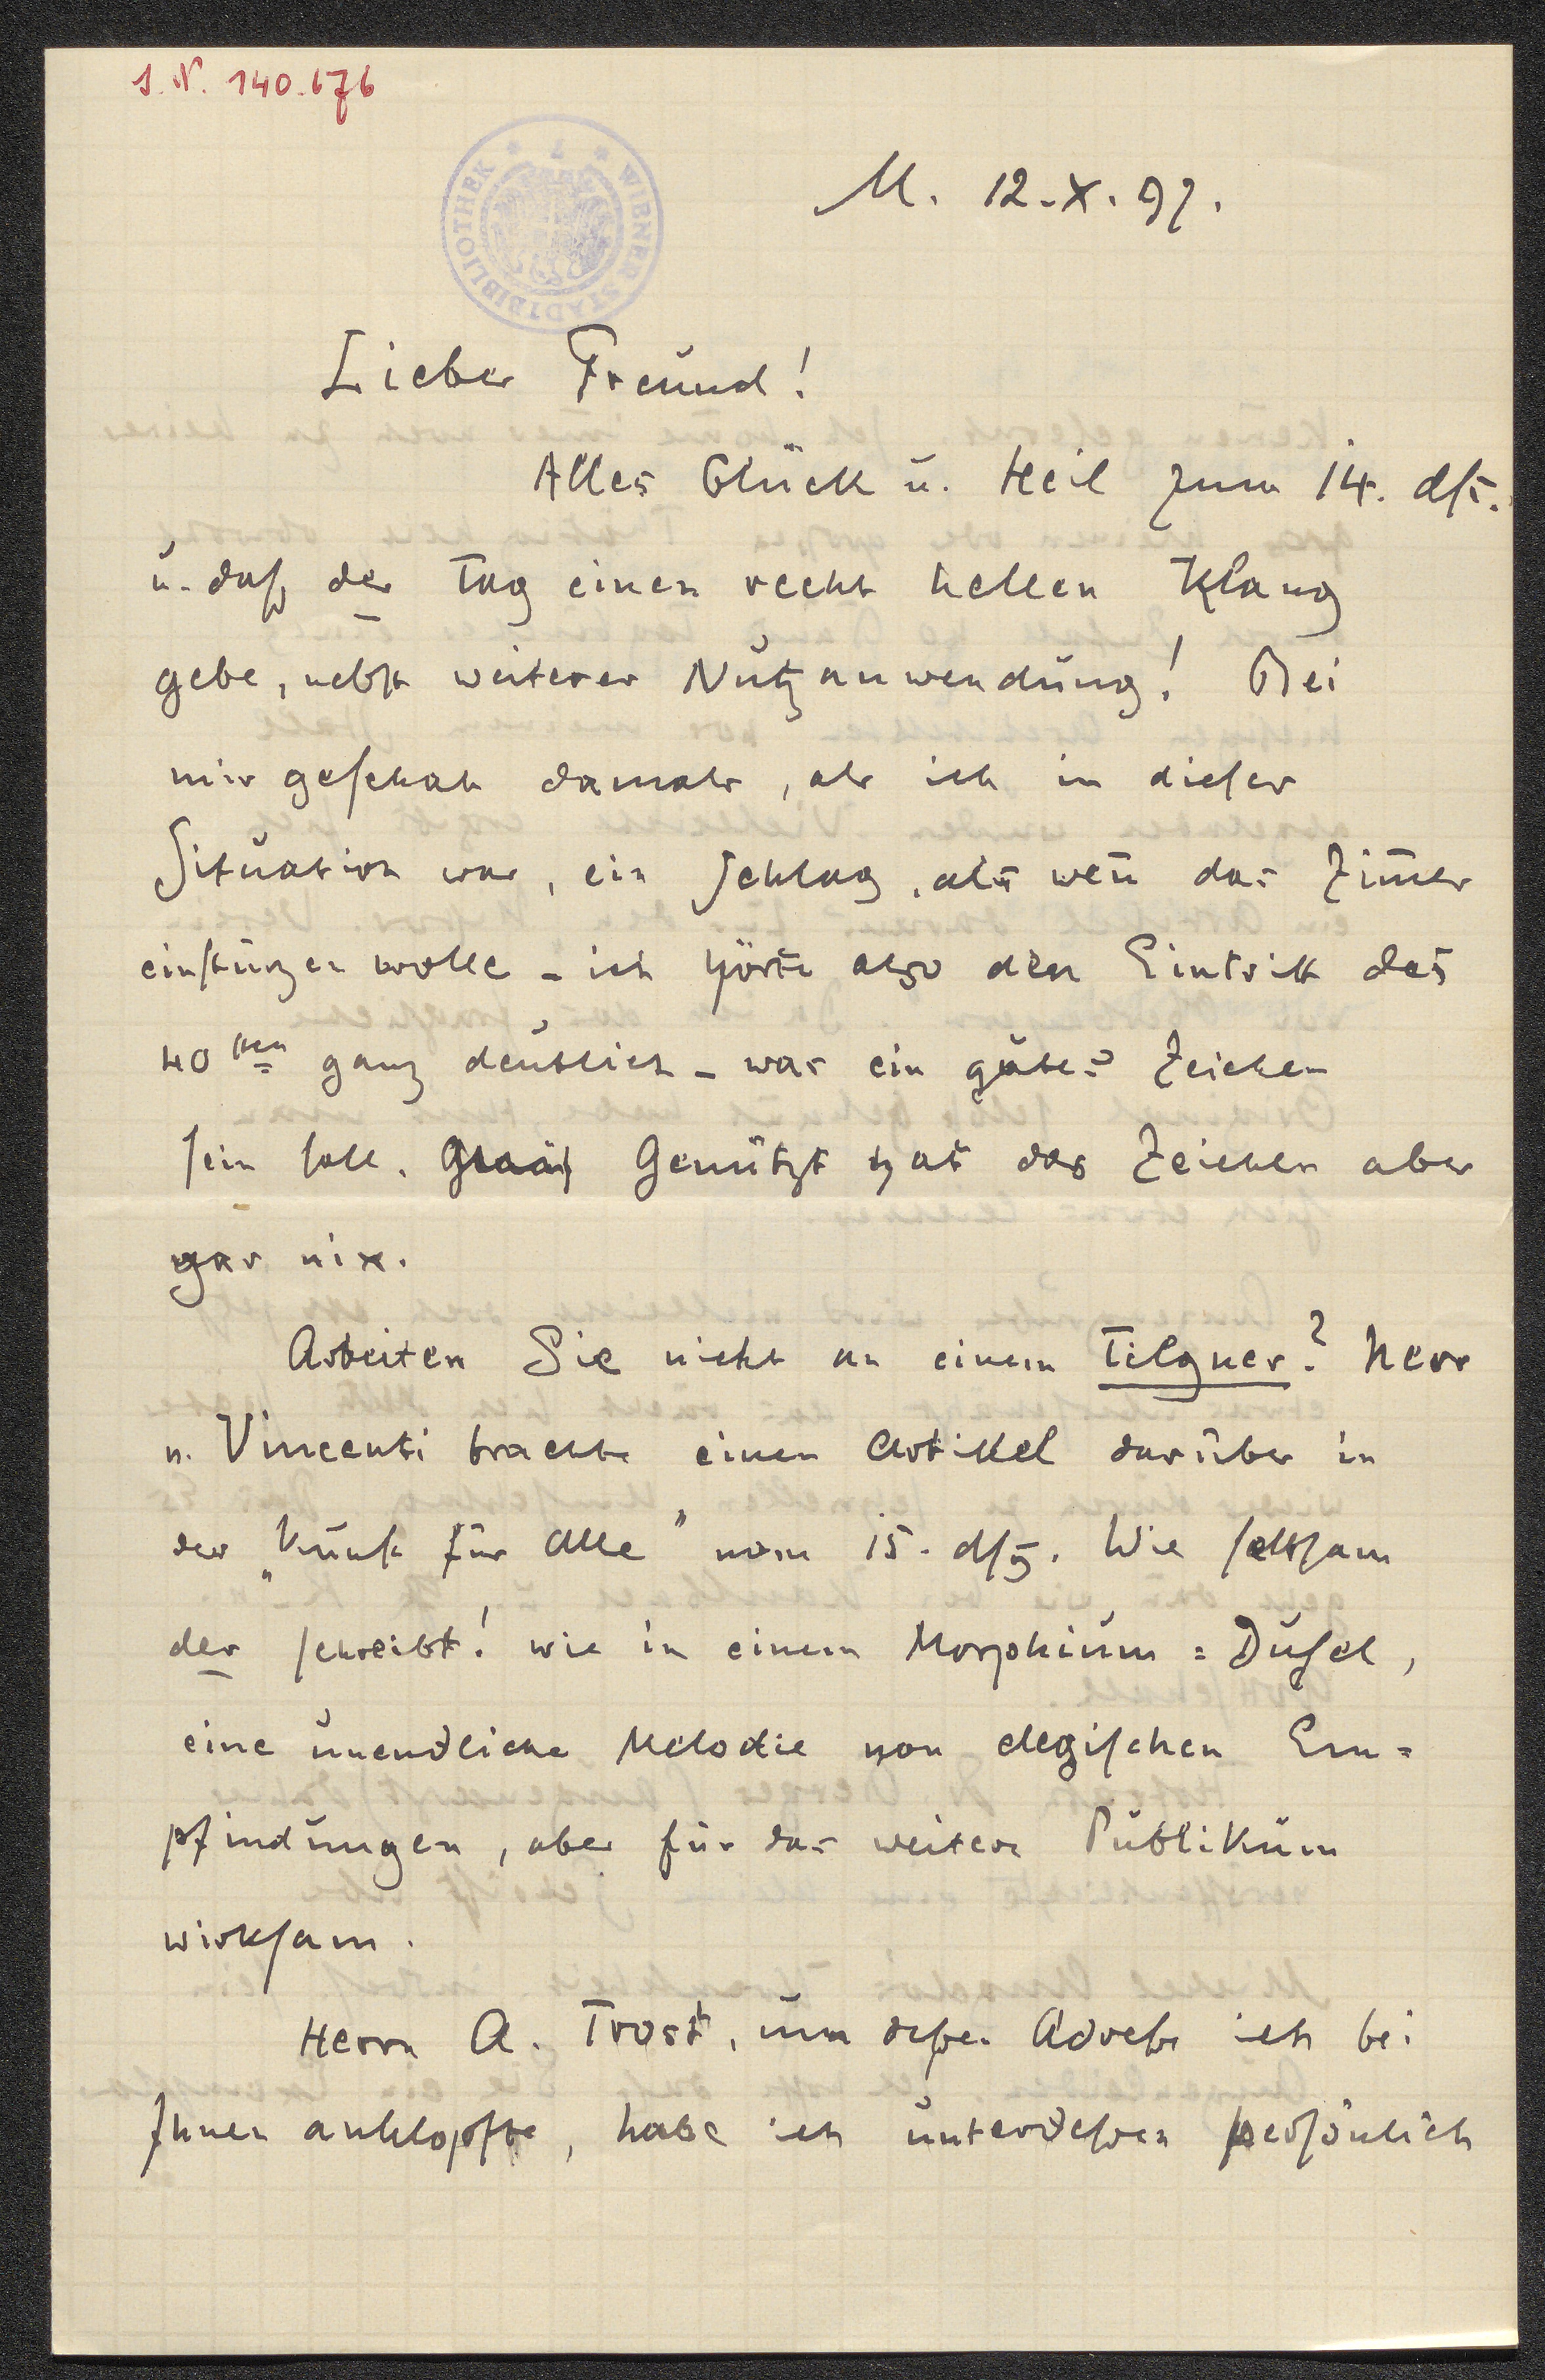 I. N. 140.676
WIENER STADTBIBLIOTHEK
M. 12.X.97.
Lieber Freund!
Alles Glück u. Heil zum 14. dſs.
u. daß der Tag einen recht hellen Klang
gebe, nebſt weiterer Nutzanwendung! Bei
mir geſchah damals, als ich in dieſer
Situation war, ein Schlag, als wen̄ das Zim̄er
einſtürzen wolle – ich hörte also den Eintritt des
40ſten ganz deutlich – was ein gutes Zeichen
ſein ſoll. Genützt hat das Zeichen aber
gar nix.
Arbeiten Sie nicht an einem Tilgner? Herr
v. Vincenti brachte einen Artikel darüber in
der „Kunſt für Alle" vom 15. dſs. Wie ſeltſam
der ſchreibt! wie in einem Morphium=Duſel,
eine unendliche Melodie von elegiſchen Em=
pfindungen, aber für das weitere Publikum
wirkſam.
Herrn A. Trost, um deſſen Adreſſe ich bei
Ihnen anklopfte, habe ich unterdeſſen perſönlich